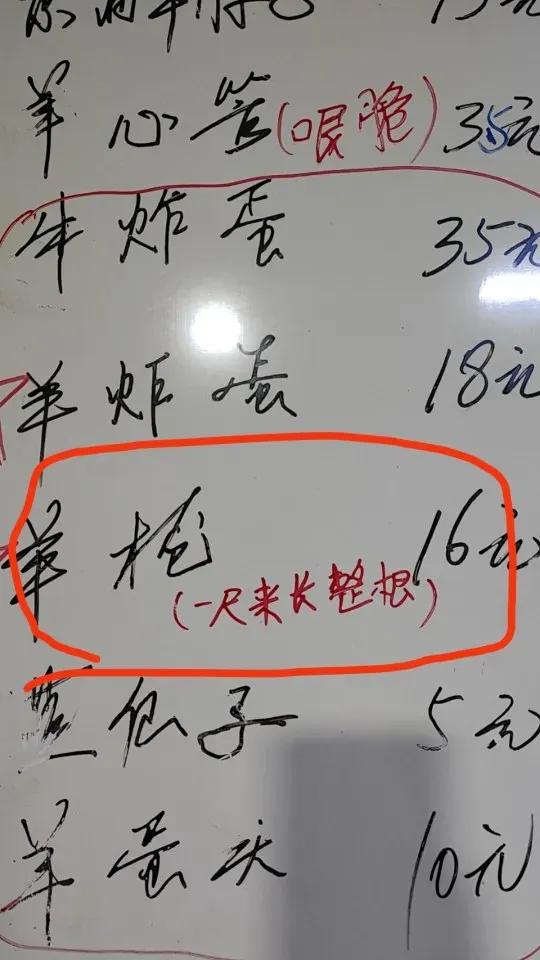 羊心管(嘎脆) 35元
牛炸蛋 35元
羊炸蛋 18元
羊枪 16元
(一尺来长整根)
仙子 5元
羊蛋皮 10元